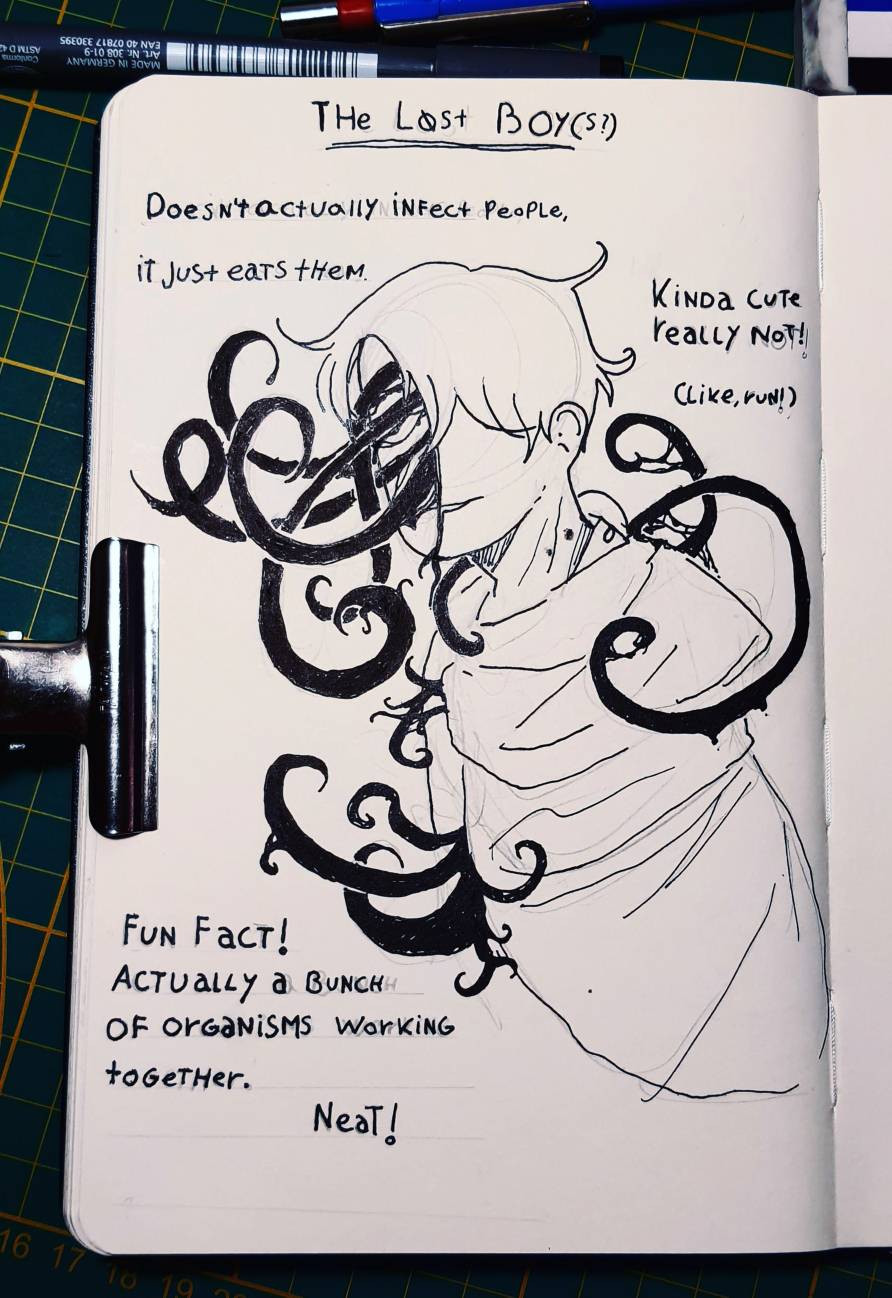 Conforms
ASTM D 42
MADE IN GERMANY
Art. Nr. 308 01-9
EAN 40 07817 330395
THe LOst BOY(s?)
DoesN't actually iNFect PeoPLe,
iT Just eaTs tHeM.
KiNDa CUTe
really NoT!
(Like, run!)
FUN FacT!
ACTUaLLy a BUNCH
OF OrGaNiSMS WorKiNG
toGeTHer.
NeaT!
16 17 18 19